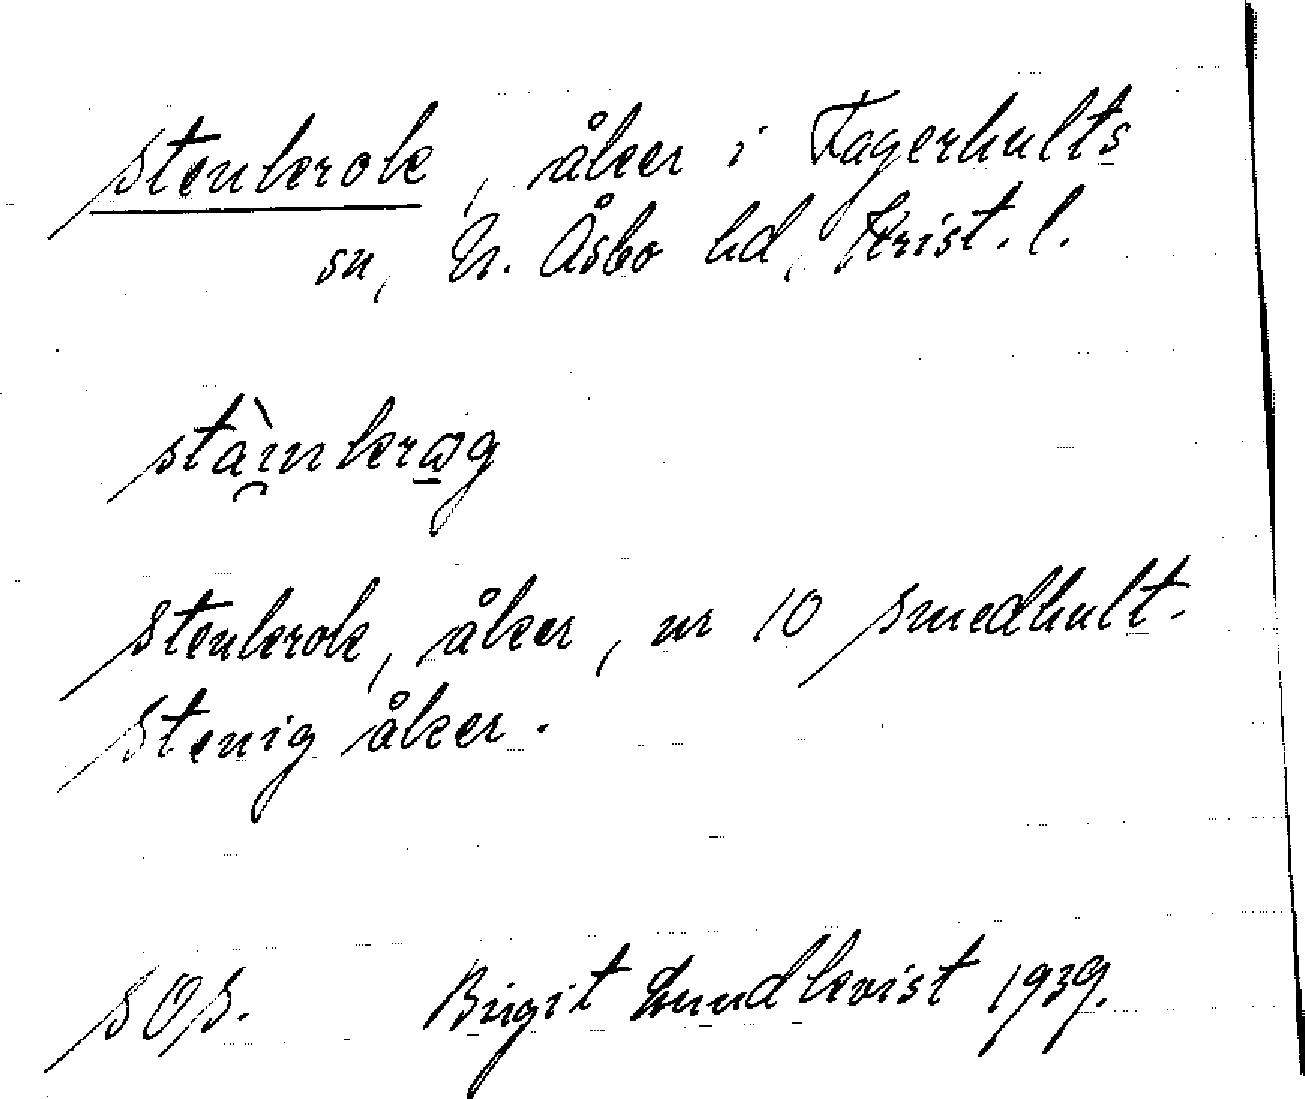 Stenkrok, åker i Fagerhults
sn, N. Åsbo hd, Krist. l.
stàinkrωg
Stenkrok, åker, nr 10 Smedhult.
Stenig åker.
SOS. Birgit Lundkvist 1939.